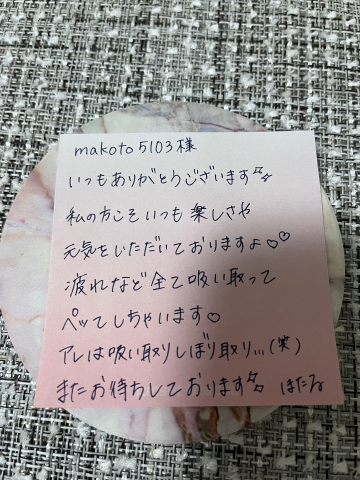 makoto5103様
いつもありがとうございます♡♡
私の方こそいつも楽しさや
元気をいただいておりますよ♡♡
疲れなど全て吸い取って
ペッてしちゃいます♡
アレは吸い取りしぼり取り...(笑)
またお待ちしております♡♡ ほたる